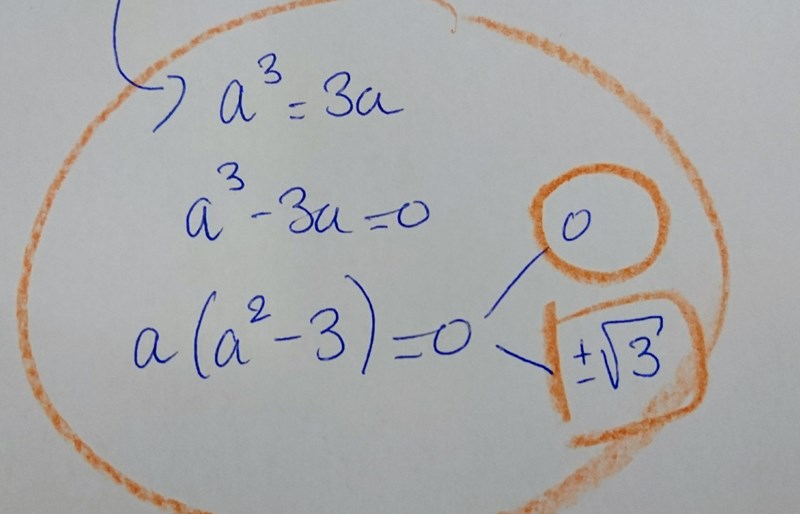 a³ = 3a
a³ - 3a = 0
0
a(a² - 3) = 0
±√3